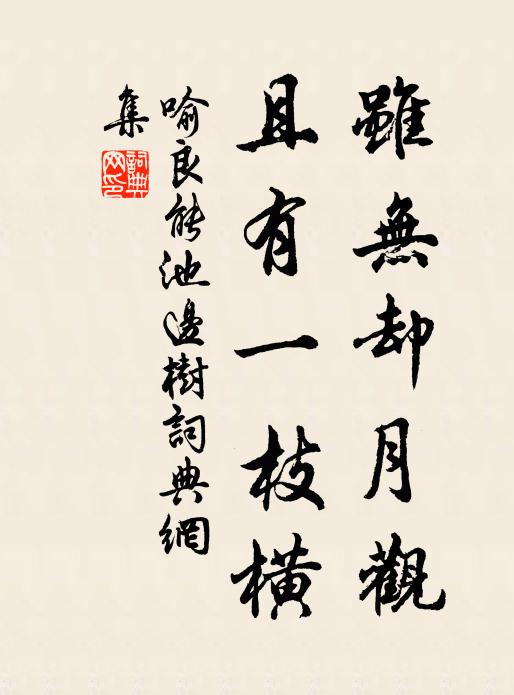 雖無却月觀
且有一枝橫
喻良能池邊樹詞典網
集
詞典網印